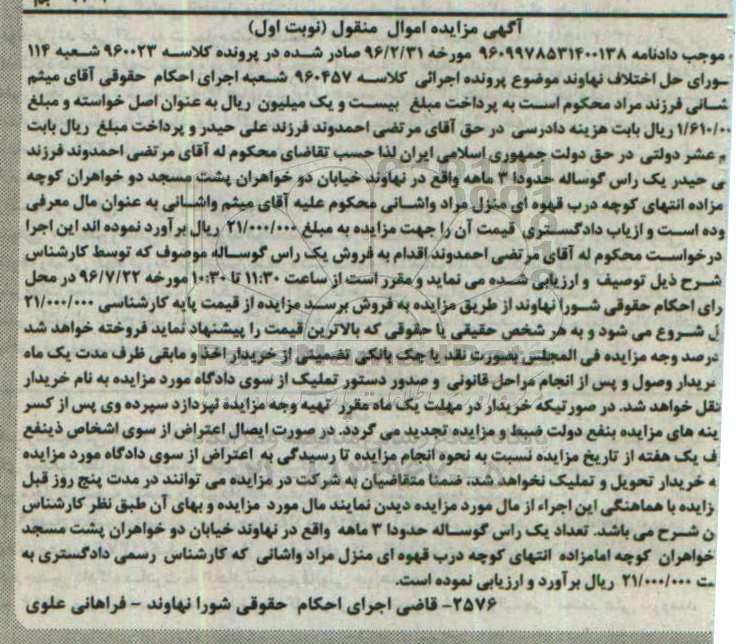 آگهی مزایده اموال منقول (نوبت اول)
موجب دادنامه ۹۶۰۹۹۷۸۵۳۱۴۰۰۱۳۸ مورخه ۹۶/۲/۳۱ صادر شده در پرونده کلاسه ۹۶۰۰۲۳ شعبه ۱۱۴
ـورای حل اختلاف نهاوند موضوع پرونده اجرائی کلاسه ۹۶۰۴۵۷ شعبه اجرای احکام حقوقی آقای میثم
شـانی فرزند مراد محکوم اسـت به پرداخت مبلغ بیسـت و یک میلیون ریال به عنوان اصل خواسته و مبلغ
۱/۶۱۰/۰۰ ریال بابت هزینه دادرسی در حق آقای مرتضی احمدوند فرزند علی حیدر و پرداخت مبلغ ریال بابت
م عشر دولتی در حق دولت جمهوری اسلامی ایران لذا حسب تقاضای محکوم له آقای مرتضی احمدوند فرزند
ی حیدر یک راس گوساله حدودا ۳ ماهه واقع در نهاوند خیابان دو خواهران پشت مسجد دو خواهران کوچه
مزاده انتهای کوچه درب قهوه ای منزل مراد واشـانی محکوم علیه آقای میثم واشـانی به عنوان مال معرفی
وده اسـت و ازیاب دادگسـتری قیمت آن را جهت مزایده به مبلغ ۲۱/۰۰۰/۰۰۰ ریال برآورد نموده اند این اجرا
درخواسـت محکوم له آقای مرتضی احمدوند اقدام به فروش یک راس گوسـاله موصوف که توسط کارشناس
شـرح ذیل توصیف و ارزیابی شـده می نماید و مقرر است از ساعت ۱۱:۳۰ تا ۱۰:۳۰ مورخه ۹۶/۷/۲۲ در محل
رای احکام حقوقی شـورا نهاوند از طریق مزایده به فروش برسـد مزایده از قیمت پایه کارشناسی ۲۱/۰۰۰/۰۰۰
ل شـروع می شود و به هر شخص حقیقی یا حقوقی که بالاترین قیمت را پیشنهاد نماید فروخته خواهد شد
درصد وجه مزایده فی المجلس بصورت نقد یا چک بانکی تضمینی از خریدار اخذ و مابقی ظرف مدت یک ماه
خریدار وصول و پس از انجام مراحل قانونی و صدور دستور تملیک از سوی دادگاه مورد مزایده به نام خریدار
نقل خواهد شد. در صورتیکه خریدار در مهلت یک ماه مقرر تهیه وجه مزایده نپردازد سپرده وی پس از کسر
ینه های مزایده بنفع دولت ضبط و مزایده تجدید می گردد. در صورت ایصال اعتراض از سوی اشخاص ذینفع
ف یک هفته از تاریخ مزایده نسبت به نحوه انجام مزایده تا رسیدگی به اعتراض از سوی دادگاه مورد مزایده
ه خریدار تحویل و تملیک نخواهد شد. ضمنا متقاضیان به شرکت در مزایده می توانند در مدت پنج روز قبل
زایده با هماهنگی این اجراء از مال مورد مزایده دیدن نمایند مال مورد مزایده و بهای آن طبق نظر کارشناس
ن شـرح می باشد. تعداد یک راس گوسـاله حدودا ۳ ماهه واقع در نهاوند خیابان دو خواهران پشت مسجد
خواهران کوچه امامزاده انتهای کوچه درب قهوه ای منزل مراد واشانی که کارشناس رسمی دادگستری به
ـت ۲۱/۰۰۰/۰۰۰ ریال برآورد و ارزیابی نموده است.
۲۵۷۶- قاضی اجرای احکام حقوقی شورا نهاوند - فراهانی علوی